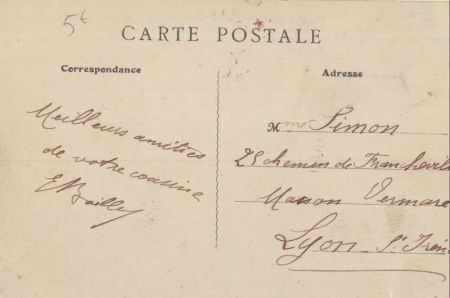 5f
CARTE POSTALE
Correspondance
Adresse
Meilleurs amitiés
de votre cousine
EBailly
Mme Simon
25 chemin de Franchevil
Maison Vermare
Lyon St Iréné